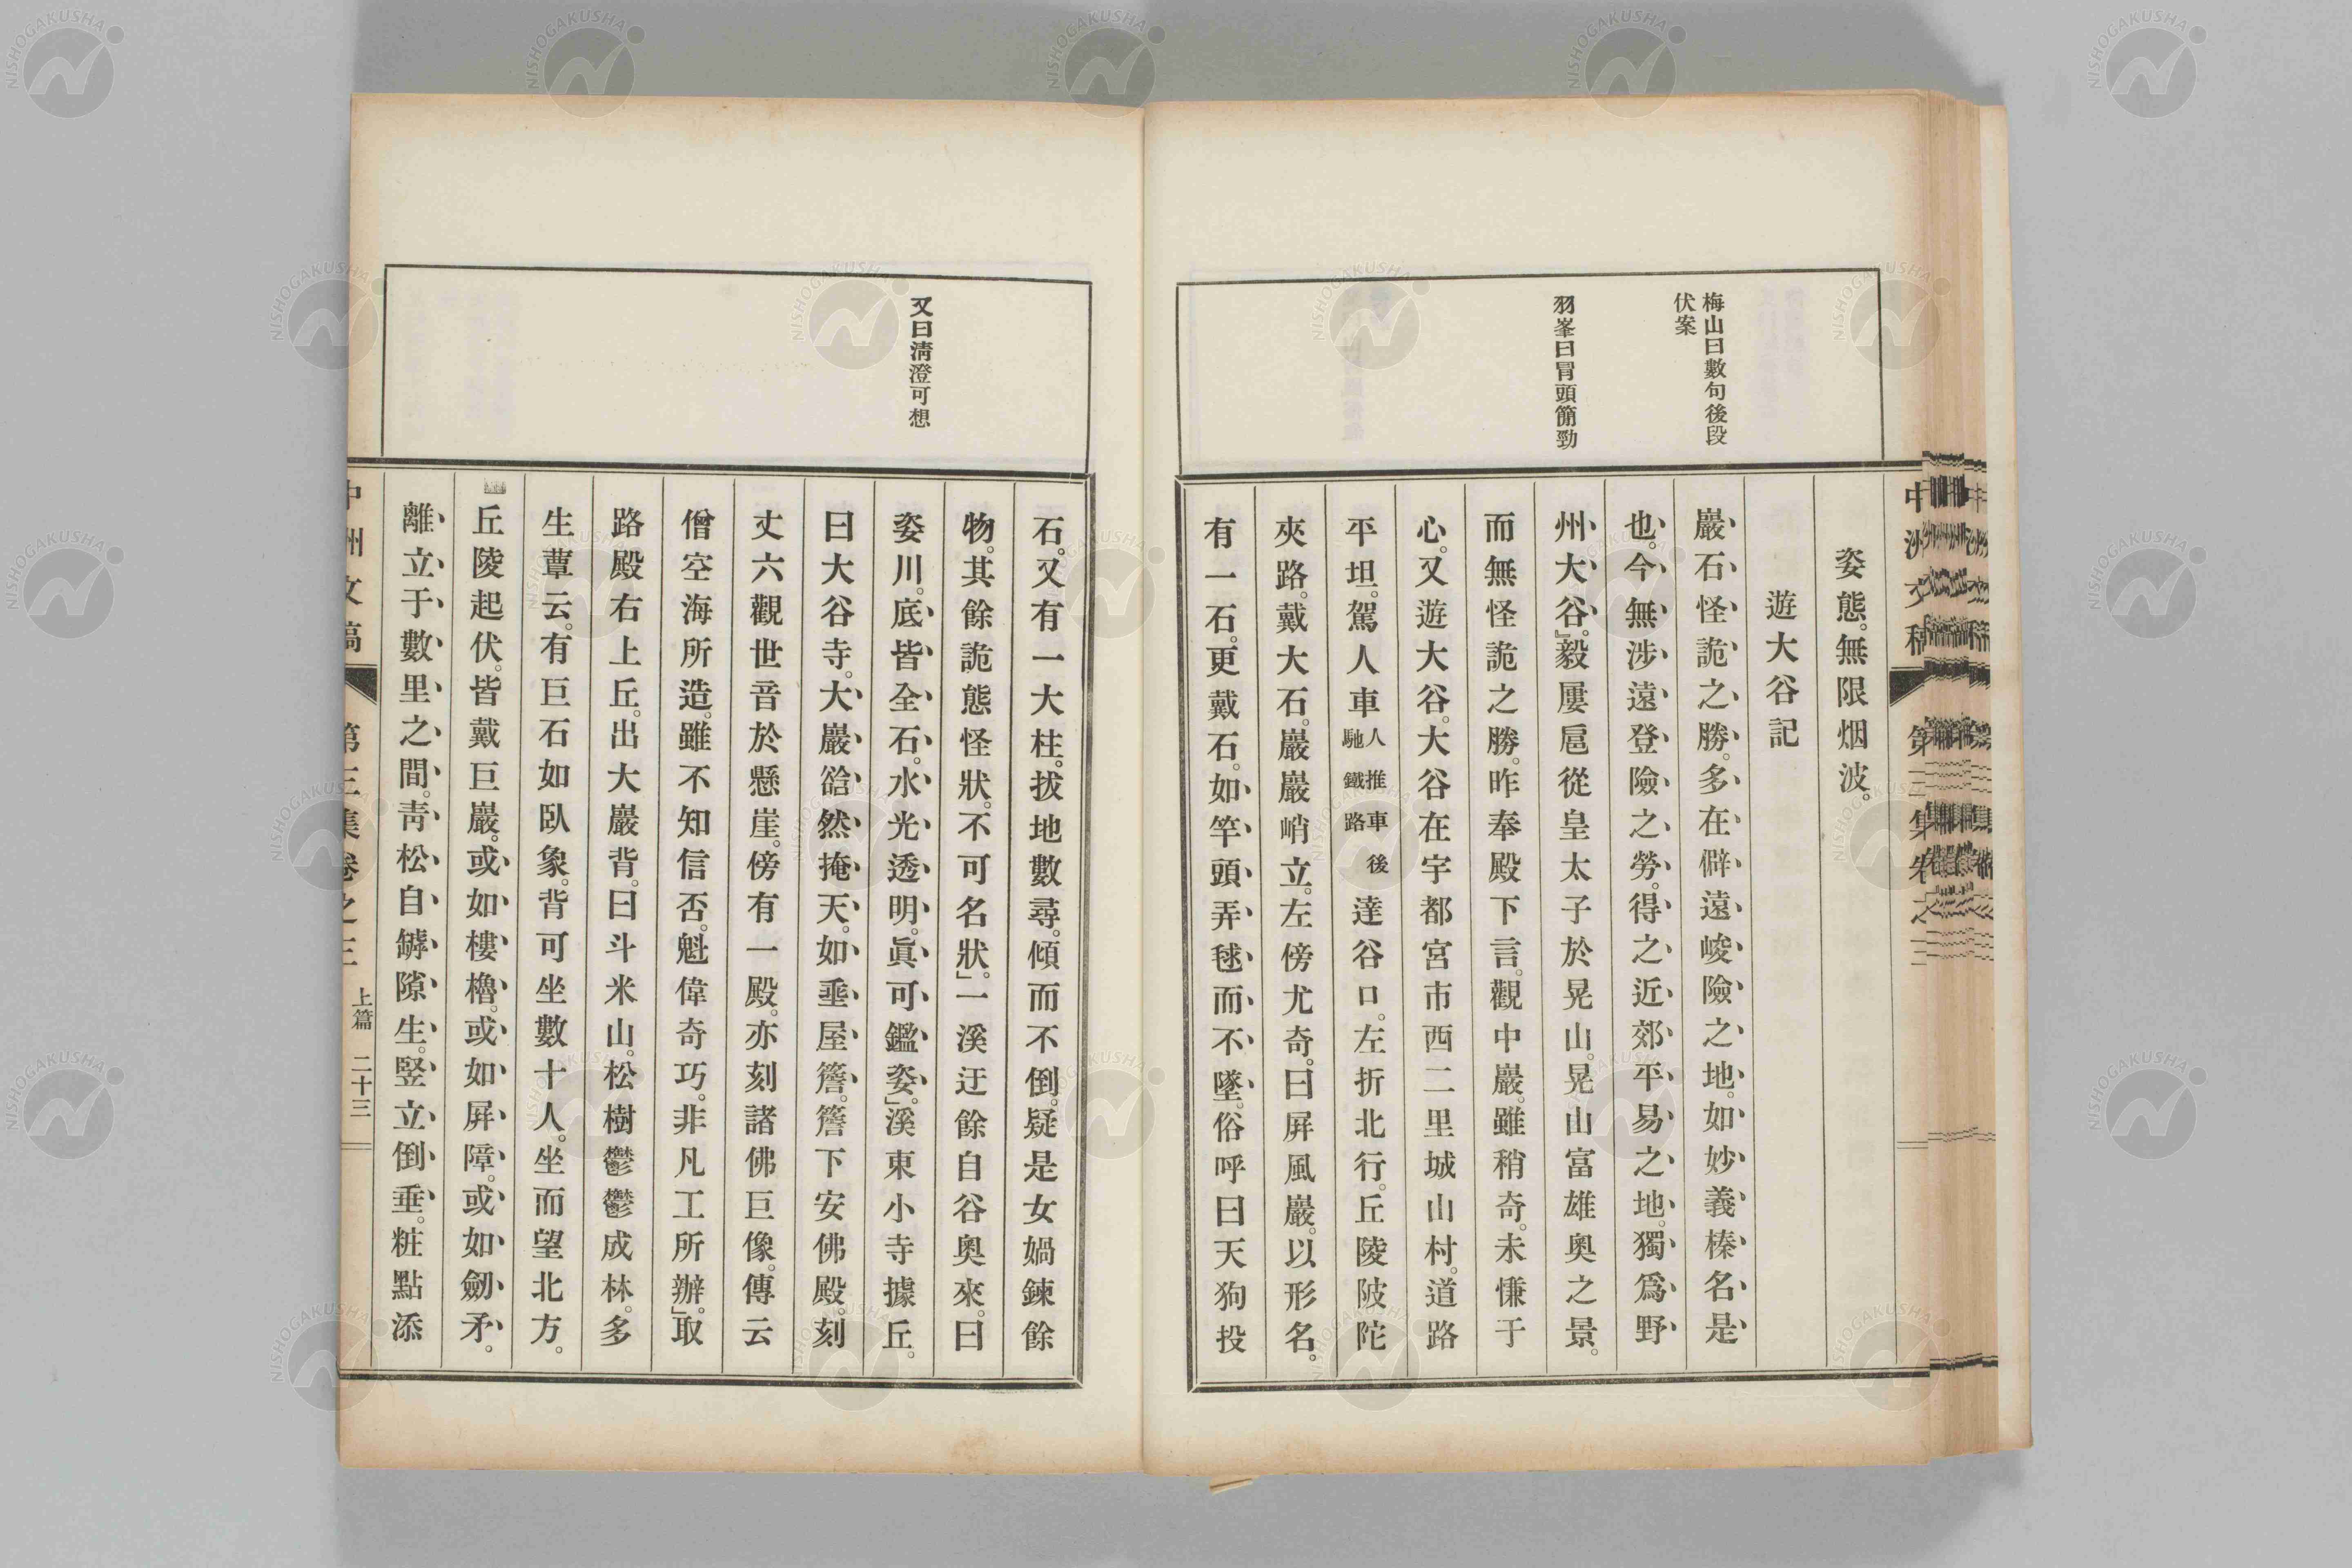 梅山曰數句後段
伏案
羽峯曰冐頭簡勁
姿態。無限烟波。
遊大谷記
巖石怪詭之勝。多在僻遠峻險之地。如妙義榛名是
也。今無涉遠登險之勞。得之近郊平易之地。獨爲野
州大谷。」毅屢扈從皇太子於晃山。晃山富雄奥之景。
而無怪詭之勝。昨奉殿下言。觀中巖。雖稍奇。未慊于
心。又遊大谷。大谷在宇都宮市西二里城山村。道路
平坦。駕人車人推車後馳鐵路達谷口。左折北行。丘陵陂陀
夾路。戴大石。巖巖峭立。左傍尤奇。曰屏風巖。以形名。
有一石。更戴石。如竿頭弄毬而不墜。俗呼曰天狗投
中洲文稿 第三集卷之三
又曰淸澄可想
石。又有一大柱。拔地數尋。傾而不倒。疑是女媧鍊餘
物。其餘詭態怪狀。不可名狀。」一溪迂餘自谷奥來。曰
姿川。底皆全石。水光透明。眞可鑑姿。」溪東小寺據丘。
曰大谷寺。大巖谽然掩天。如垂屋簷。簷下安佛殿。刻
丈六觀世音於懸崖。傍有一殿。亦刻諸佛巨像。傳云
僧空海所造。雖不知信否。魁偉奇巧。非凡工所辦。」取
路殿右上丘。出大巖背。曰斗米山。松樹鬱鬱成林。多
生蕈云。有巨石如臥象。背可坐數十人。坐而望北方。
丘陵起伏。皆戴巨巖。或如樓櫓。或如屏障。或如劒矛。
離立于數里之間。靑松自罅隙生。竪立倒垂。粧點添
中洲文稿 第三集卷之三 上篇 二十三
NISHOGAKUSHA